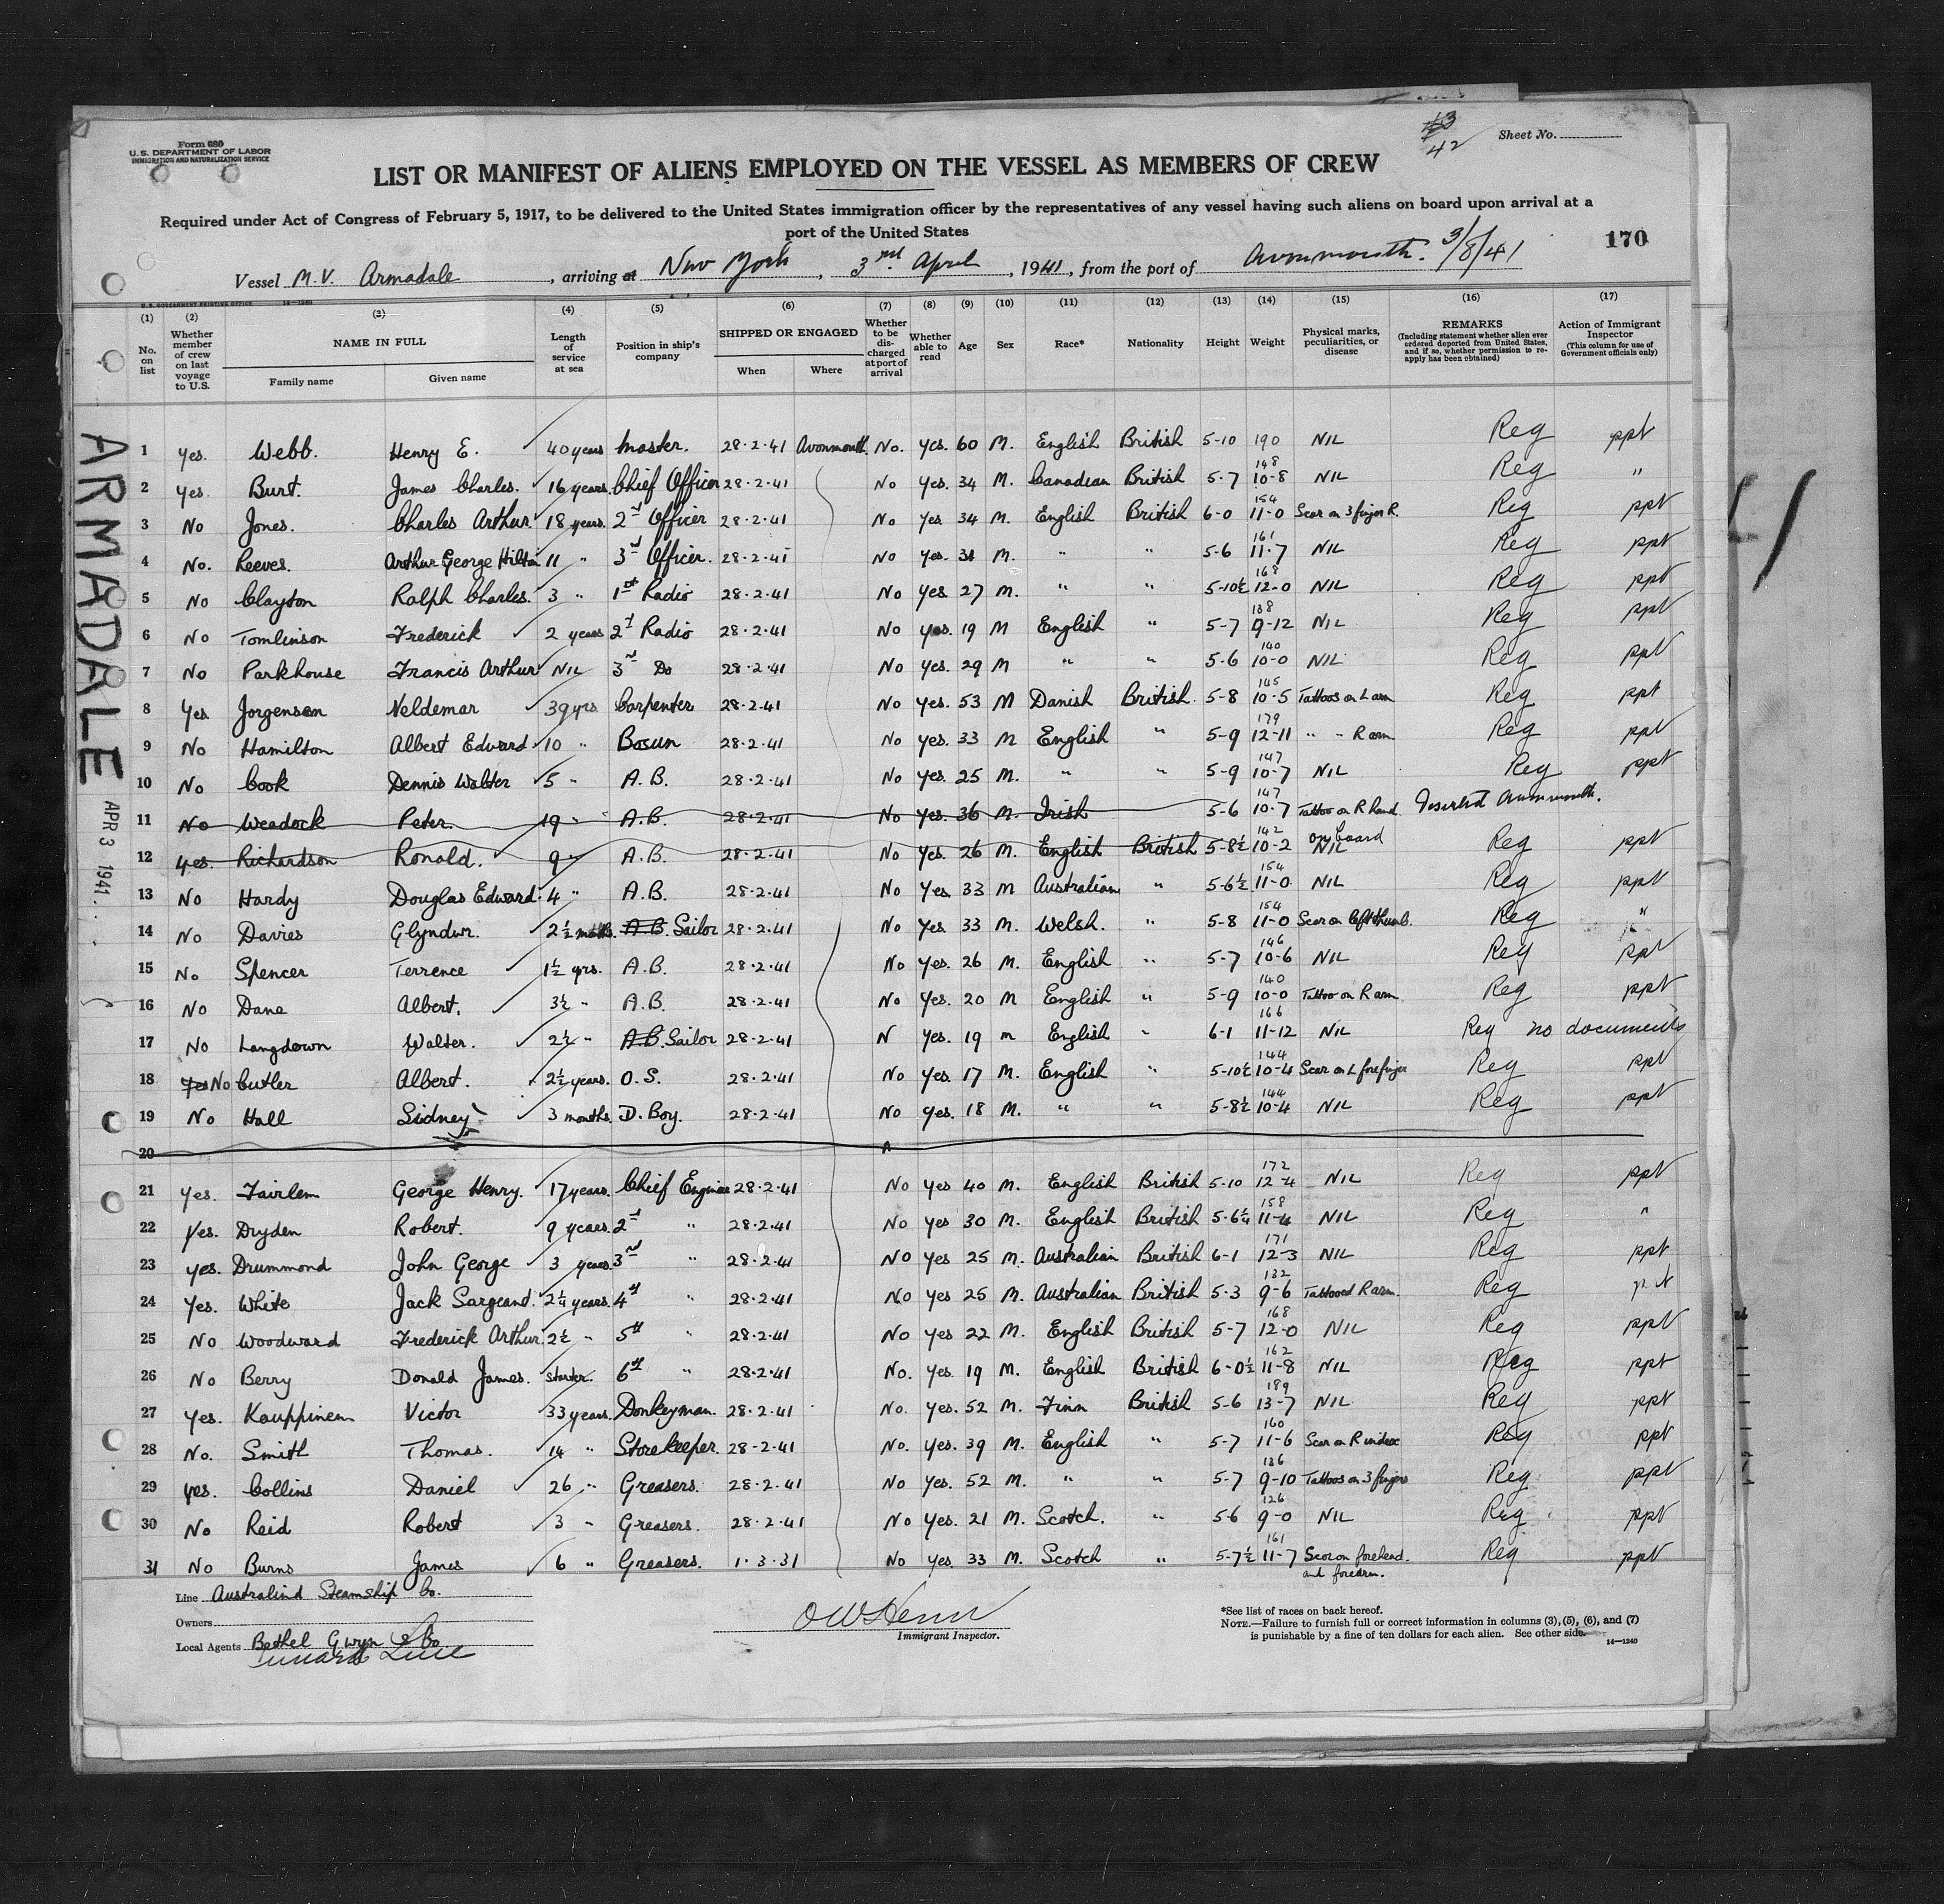 Form 680
U.S. DEPARTMENT OF LABOR
IMMIGRATION AND NATURALIZATION SERVICE
43
42
Sheet No.
LIST OR MANIFEST OF ALIENS EMPLOYED ON THE VESSEL AS MEMBERS OF CREW
Required under Act of Congress of February 5, 1917, to be delivered to the United States immigration officer by the representatives of any vessel having such aliens on board upon arrival at a
port of the United States
170
Vessel M.V. Armadale, arriving at New York, 3rd April, 1941, from the port of Avonmouth. 3/8/41
U.S. GOVERNMENT PRINTING OFFICE 14—1240
(1) No. on list
(2) Whether member of crew on last voyage to U.S.
(3) NAME IN FULL Family name Given name
(4) Length of service at sea
(5) Position in ship's company
(6) SHIPPED OR ENGAGED When Where
(7) Whether to be discharged at port of arrival
(8) Whether able to read
(9) Age
(10) Sex
(11) Race*
(12) Nationality
(13) Height
(14) Weight
(15) Physical marks, peculiarities, or disease
(16) REMARKS (Including statement whether alien ever ordered deported from United States, and if so, whether permission to reapply has been obtained)
(17) Action of Immigrant Inspector (This column for use of Government officials only)
ARMADALE
APR 3 1941
1 yes. Webb. Henry E. 40 years Master. 28·2·41 Avonmouth. No. yes. 60 M. English British 5-10 190 NIL Reg ppt
2 yes. Burt. James Charles. 16 years. Chief Officer 28·2·41 No Yes. 34 M. Canadian British 5·7 148 10-8 NIL Reg "
3 No Jones. Charles Arthur 18 years. 2nd Officer 28·2·41 No Yes 34 M. English British 6-0 154 11-0 Scar on 3 finger R. Reg ppt
4 No. Reeves. Arthur George Hilton 11 " 3rd Officer. 28·2·41 No yes. 31 M. " " 5-6 161 11·7 NIL Reg ppt
5 No Clayton Ralph Charles. 3 " 1st Radio 28·2·41 No yes 27 M. " " 5-10½ 168 12-0 NIL Reg ppt
6 No Tomlinson Frederick 2 years 2nd Radio 28·2·41 No yes. 19 M English " 5-7 138 9-12 NIL Reg ppt
7 No Parkhouse Francis Arthur NIL 3rd Do 28·2·41 No Yes. 29 M " " 5-6 140 10-0 NIL Reg ppt
8 Yes Jorgensen Veldemar 39 yrs Carpenter 28·2·41 No Yes. 53 M Danish British. 5-8 145 10·5 Tattoos on L arm Reg ppt
9 No Hamilton Albert Edward 10 " Bosun 28·2·41 No yes. 33 M English " 5-9 179 12-11 " " R arm Reg ppt
10 No Cook Dennis Walter 5 " A.B. 28·2·41 No Yes. 25 M. " " 5-9 147 10-7 NIL Reg ppt
11 No Weadock Peter. 19 " A.B. 28·2·41 No Yes. 36 M. Irish 5-6 147 10·7 Tattoo on R hand Deserted Avonmouth.
12 yes. Richardson Ronald. 9 " A.B. 28·2·41 No Yes. 26 M. English British 5-8½ 142 10-2 on board NIL Reg ppt
13 No Hardy Douglas Edward. 4 " A.B. 28·2·41 No Yes. 33 M Australian " 5-6½ 154 11-0 NIL Reg ppt
14 No Davies Glyndwr. 2½ mths. A.B. Sailor 28·2·41 No Yes 33 M. Welsh. " 5-8 154 11-0 Scar on left thumb. Reg "
15 No Spencer Terrence 1½ yrs. A.B. 28·2·41 No yes. 26 M. English " 5-7 146 10-6 NIL Reg ppt
16 No Dane Albert. 3½ " A.B. 28·2·41 No Yes. 20 M English " 5-9 140 10-0 Tattoo on R arm Reg ppt
17 No Langdown Walter. 2½ " A.B. Sailor 28·2·41 N Yes. 19 m English " 6-1 166 11-12 NIL Reg no documents
18 Yes No Cutler Albert. 2½ years. O.S. 28·2·41 No Yes. 17 M. English " 5-10½ 144 10-4 Scar on L forefinger Reg ppt
19 No Hall Sidney 3 months. D. Boy. 28·2·41 No yes. 18 M. " " 5-8½ 144 10-4 NIL Reg ppt
20
21 yes. Fairlem George Henry. 17 years. Chief Engineer 28·2·41 No yes 40 M. English British 5-10 172 12-4 NIL Reg ppt
22 yes. Dryden Robert. 9 years. 2nd " 28·2·41 No yes 30 M. English British 5·6¼ 158 11-4 NIL Reg "
23 yes. Drummond John George 3 years. 3rd " 28·2·41 NO yes 25 M. Australian British 6-1 171 12-3 NIL Reg ppt
24 Yes. White Jack Sargeant. 2¼ years. 4th " 28·2·41 No yes 25 M. Australian British 5·3 132 9-6 Tattooed R arm. Reg ppt
25 No Woodward Frederick Arthur. 2½ " 5th " 28·2·41 No yes 22 M. English British 5-7 168 12-0 NIL Reg ppt
26 No Berry Donald James. Starter. 6th " 28·2·41 No. yes. 19 M. English British 6-0½ 162 11-8 NIL Reg ppt
27 Yes. Kauppinen Victor 33 years. Donkeyman. 28·2·41 No. yes. 52 M. Finn British 5-6 189 13-7 NIL Reg ppt
28 No. Smith Thomas. 14 " Storekeeper. 28·2·41 No. yes. 39 M. English " 5-7 160 11-6 Scar on R index Reg ppt
29 yes. Collins Daniel 26 " Greasers. 28·2·41 No yes. 52 M. " " 5-7 136 9-10 Tattoos on 3 fingers Reg ppt
30 No Reid Robert 3 " Greasers. 28·2·41 No yes. 21 M. Scotch. " 5-6 126 9-0 NIL Reg. ppt
31 No Burns James 6 " Greasers. 1·3·31 No yes. 33 M. Scotch " 5-7½ 161 11-7 Scar on forehead. and forearm. Reg ppt
Line Australind Steamship Co.
Owners
Local Agents Bethel Gwyn & Co
Cunard Line
Immigrant Inspector.
*See list of races on back hereof.
NOTE.—Failure to furnish full or correct information in columns (3), (5), (6), and (7)
is punishable by a fine of ten dollars for each alien. See other side.
14—1240